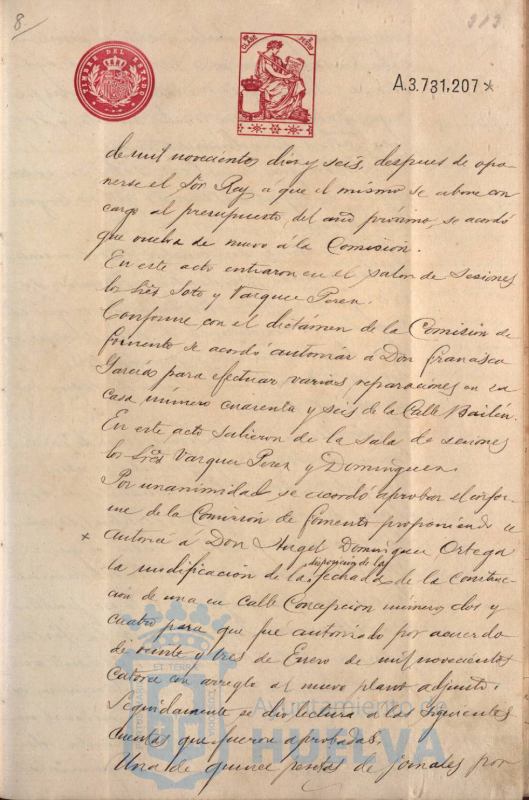 8
313
TIMBRE DEL ESTADO
A.3.731,207*
de mil novecientos diez y seis, despues de opo-
nerse el Sor Rey a que el mismo se abone con
cargo al presupuesto del año próximo, se acordó
que vuelva de nuevo á la Comision.
En este acto entraron en el salon de sesiones
los Sres Soto y Vazquez Perez.
Conforme con el dictámen de la Comision de
Fomento se acordó autorizar á Don Francisco
Garcia para efectuar varias reparaciones en la
casa número cuarenta y seis de la Calle Bailén.
En este acto salieron de la sala de sesiones
los Sres Vazquez Perez y Dominguez.
Por unanimidad se acordó aprobar el infor-
me de la Comision de Fomento proponiendo se
x autorice a Don Angel Dominguez Ortega
disposicion de la
la modificacion de la fachada de la construc-
cion de una en calle Concepcion números dos y
cuatro para que fué autorizado por acuerdo
de veinte y tres de Enero de mil novecientos
catorce con arreglo al nuevo plano adjunto.
Seguidamente se dio lectura a las siguientes
cuentas que fueron aprobadas.
Una de quince pesetas de jornales por
Ayuntamiento de
HUELVA